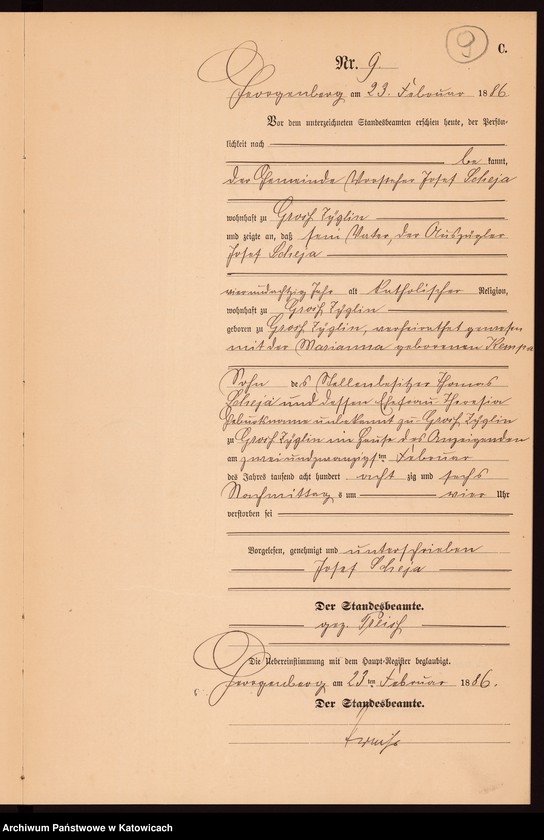 9
C.
Nr. 9.
Georgenberg am 23. Februar 1886
Vor dem unterzeichneten Standesbeamten erschien heute, der Persön-
lichkeit nach
bekannt,
der Gemeinde Vorsteher Josef Scheja
wohnhaft zu Grosz Zyglin
und zeigte an, daß sein Vater, der Auszügler
Josef Scheja
vierundachtzig Jahr alt katholischer Religion,
wohnhaft zu Grosz Zyglin
geboren zu Grosz Zyglin, verheirathet gewesen
mit der Marianna geborenen Klempa
Sohn des Stellenbesitzer Thomas
Scheja und dessen Ehefrau Theresia
Geburtsname unbekannt zu Grosz Zyglin
zu Grosz Zyglin im Hause des Anzeigenden
am zweiundzwanzigsten Februar
des Jahres tausend acht hundert achtzig und sechs
Nachmittags um vier Uhr
verstorben sei
Vorgelesen, genehmigt und unterschrieben
Josef Scheja
Der Standesbeamte.
gez.
Die Uebereinstimmung mit dem Haupt-Register beglaubigt.
Georgenberg am 23ten Februar 1886.
Der Standesbeamte.
Archiwum Państwowe w Katowicach